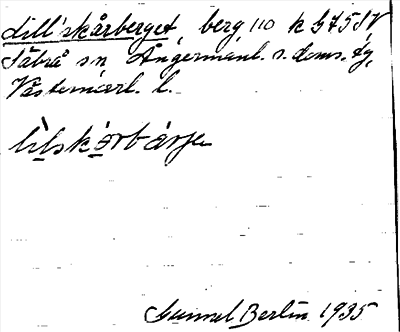 Lill'skårberget, berg 110 k 3475 SV
Säbrå sn Ångermanl. s. doms. dg,
Västernorrl. l.
lilskårbärje
Gunnel Berlin 1935